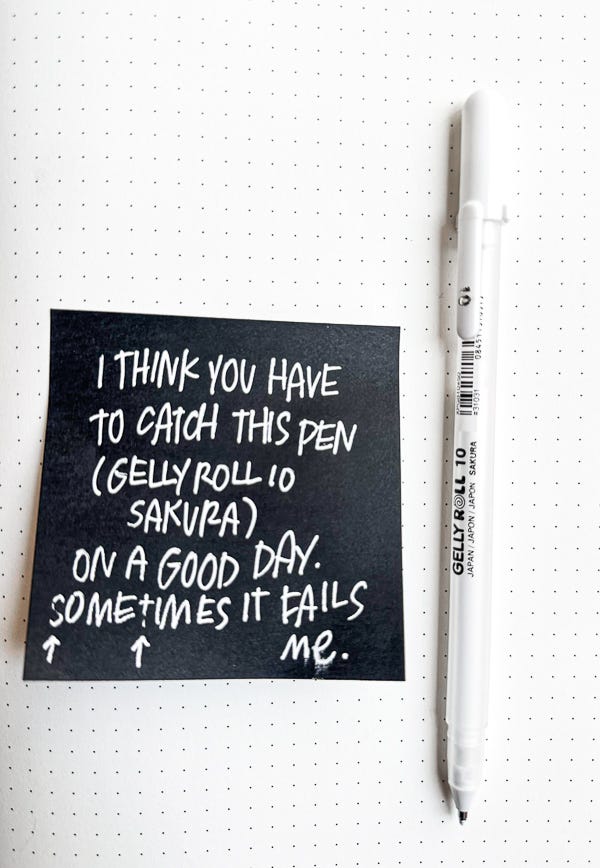 I THINK YOU HAVE
TO CATCH THIS PEN
(GELLY ROLL 10
SAKURA)
ON A GOOD DAY.
SOMETIMES IT FAILS
me.
10
#31031
GELLY ROLL 10
JAPAN / JAPON / JAPÓN SAKURA